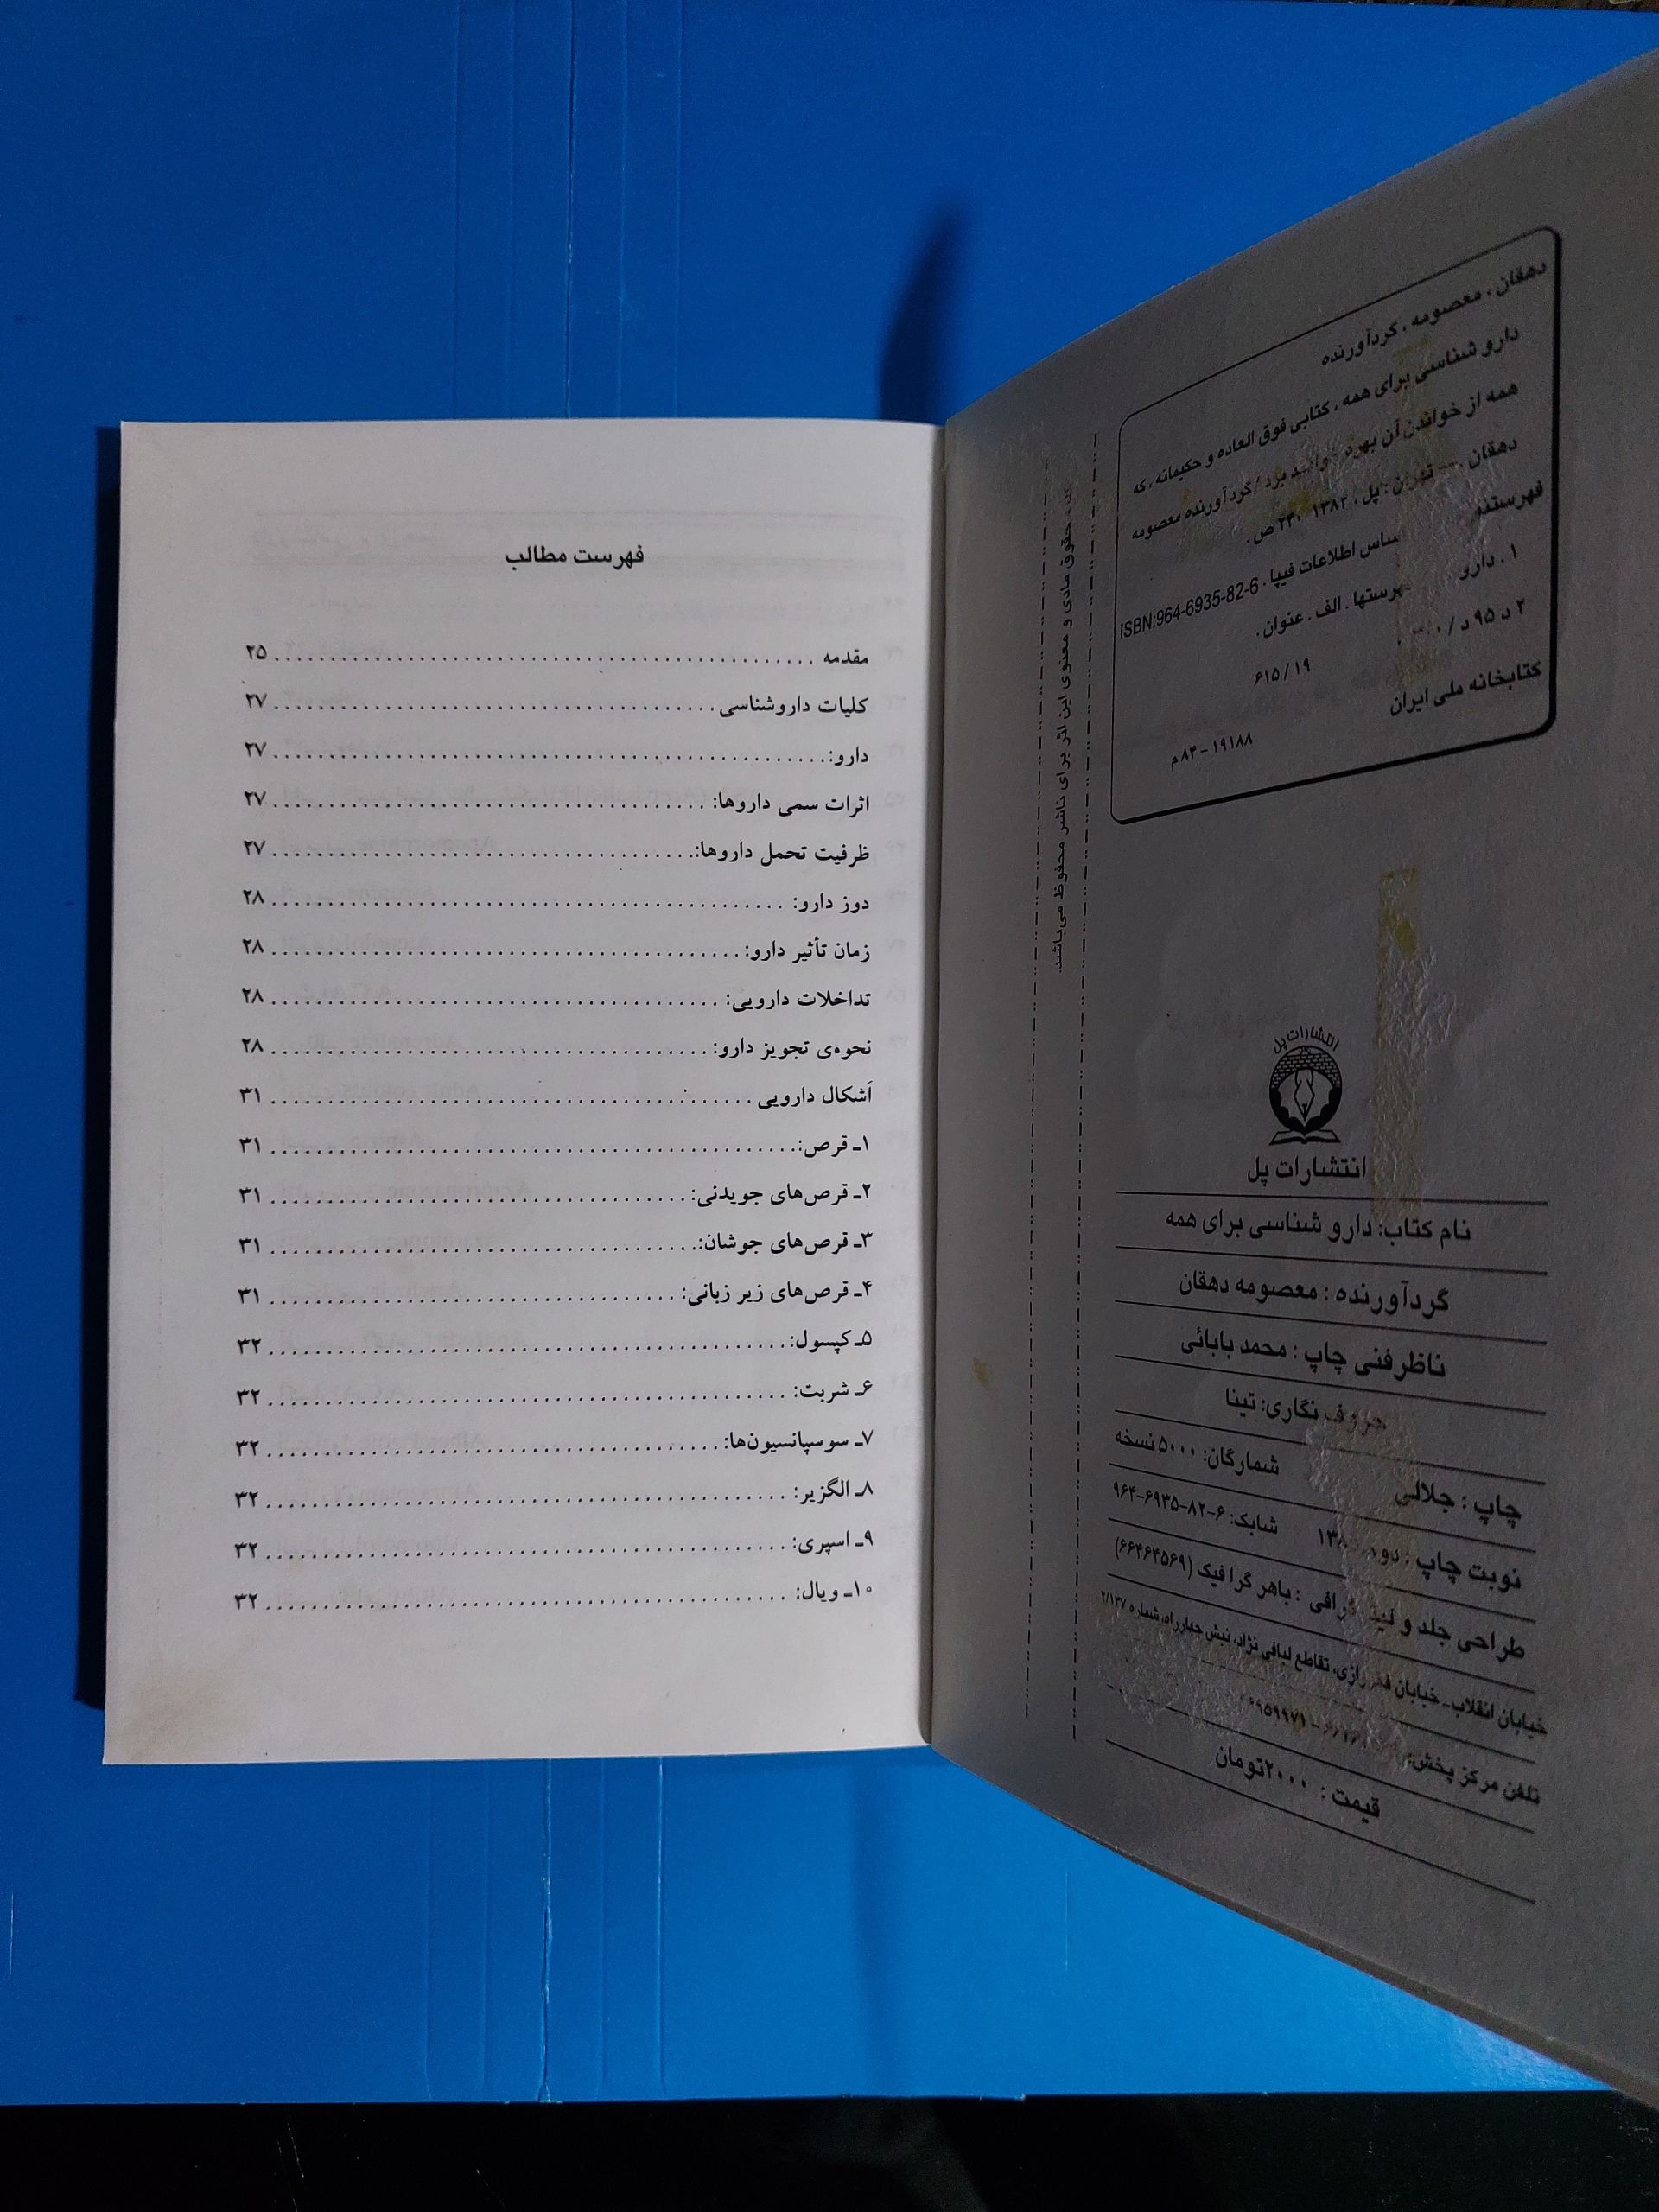 دهقان، معصومه، گردآورنده
دارو شناسی برای همه، کتابی فوق العاده و حکیمانه، که
همه از خواندن آن بهره برد / گردآورنده معصومه
دهقان. — تهران: پل، ۲۴۰ ص.
اساس اطلاعات فیپا. ISBN:964-6935-82-6
۱. دارو الف. عنوان.
۲ د ۹۵ د /
۶۱۵/۱۹
کتابخانه ملی ایران
۱۹۱۸۸-۸۴م
حقوق مادی و معنوی این اثر برای ناشر محفوظ می‌باشد.
انتشارات پل
انتشارات پل
نام کتاب: دارو شناسی برای همه
گردآورنده : معصومه دهقان
ناظر فنی چاپ : محمد بابائی
حروف نگاری: تینا
چاپ : جلالی شمارگان: ۵۰۰۰ نسخه
نوبت چاپ : دوم شابک: ۶-۸۲-۶۹۳۵-۹۶۴
طراحی جلد و لیتوگرافی : باهر گرافیک (۶۶۴۶۴۵۶۹)
خیابان انقلاب- خیابان فخر رازی، تقاطع لبافی نژاد، نبش چهارراه، شماره ۲/۱۳۷
تلفن مرکز پخش:
قیمت : ۲۰۰۰تومان
فهرست مطالب
مقدمه ........ ۲۵
کلیات داروشناسی ........ ۲۷
دارو: ........ ۲۷
اثرات سمی داروها: ........ ۲۷
ظرفیت تحمل داروها: ........ ۲۷
دوز دارو: ........ ۲۸
زمان تأثیر دارو: ........ ۲۸
تداخلات دارویی: ........ ۲۸
نحوه‌ی تجویز دارو: ........ ۲۸
اَشکال دارویی ........ ۳۱
۱ـ قرص: ........ ۳۱
۲ـ قرص‌های جویدنی: ........ ۳۱
۳ـ قرص‌های جوشان: ........ ۳۱
۴ـ قرص‌های زیر زبانی: ........ ۳۱
۵ـ کپسول: ........ ۳۲
۶ـ شربت: ........ ۳۲
۷ـ سوسپانسیون‌ها: ........ ۳۲
۸ـ الگزیر: ........ ۳۲
۹ـ اسپری: ........ ۳۲
۱۰ـ ویال: ........ ۳۲